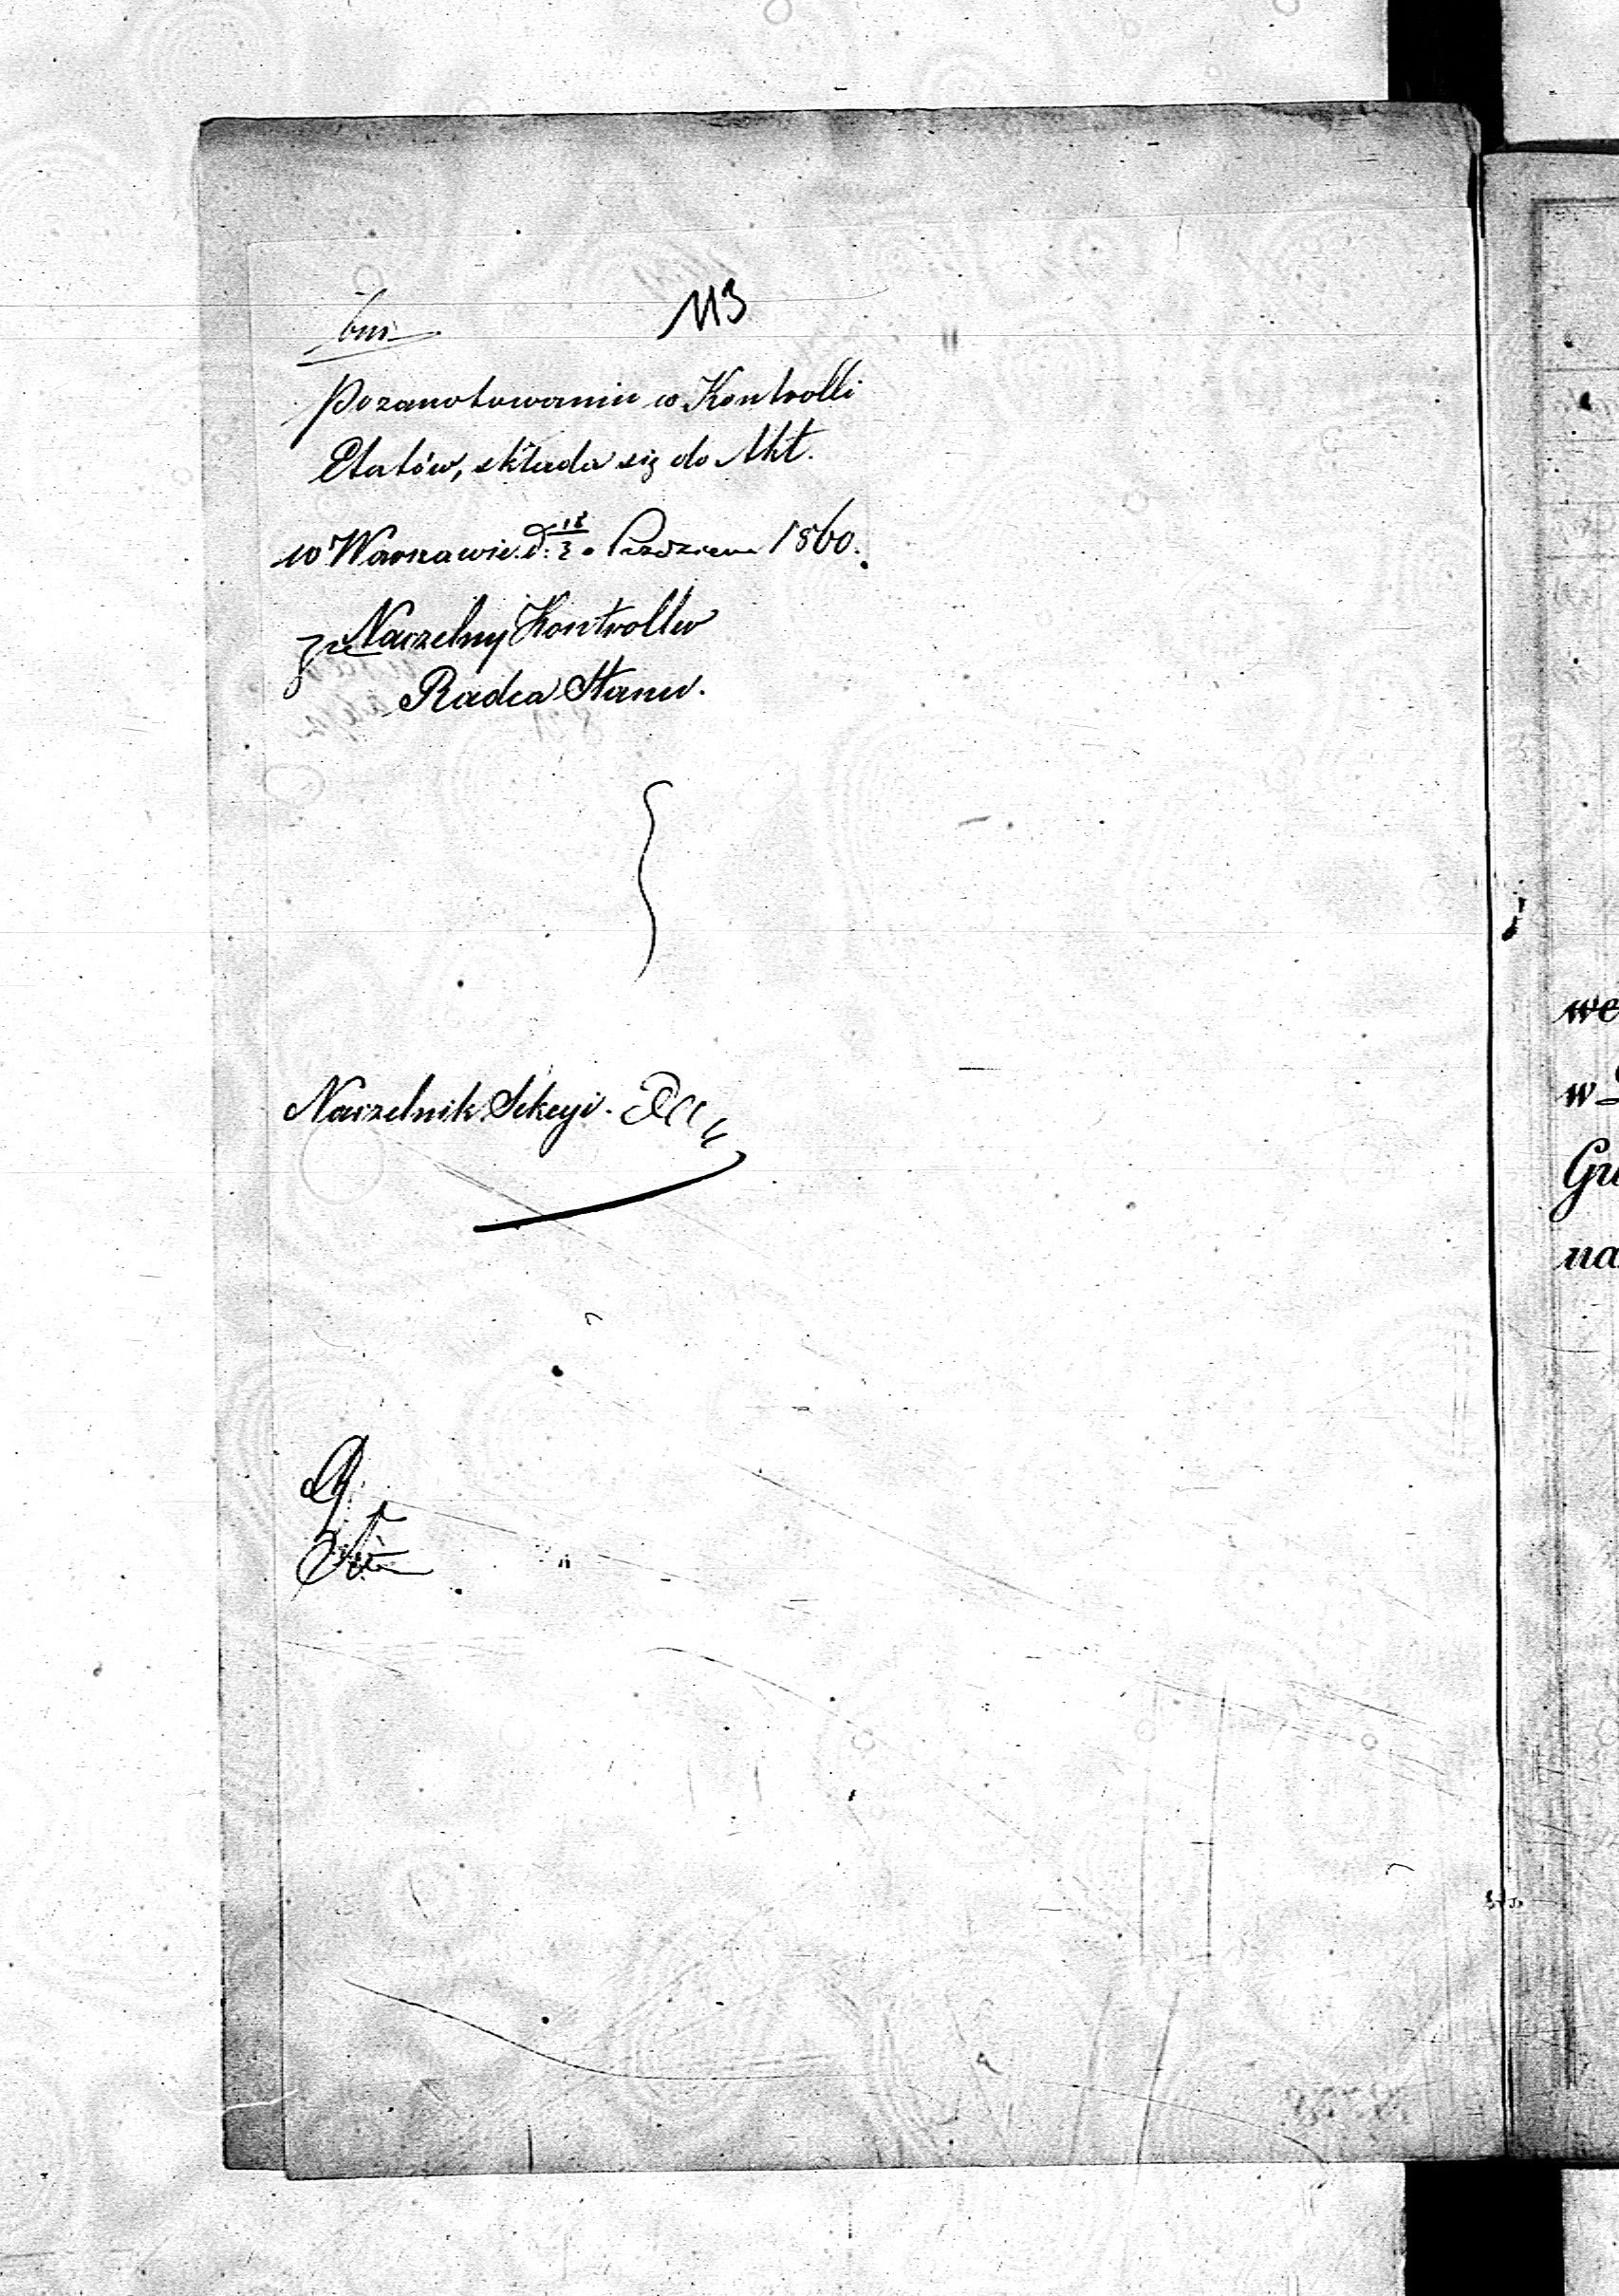 113
Po zanotowaniu w Kontrolli
Etatów, składa się do Akt.
w Warszawie d. 18/3 Paździer 1860.
za Naczelny Kontroller
Radca Stanu.
Naczelnik Sekcyi.
we
w
Gu
na